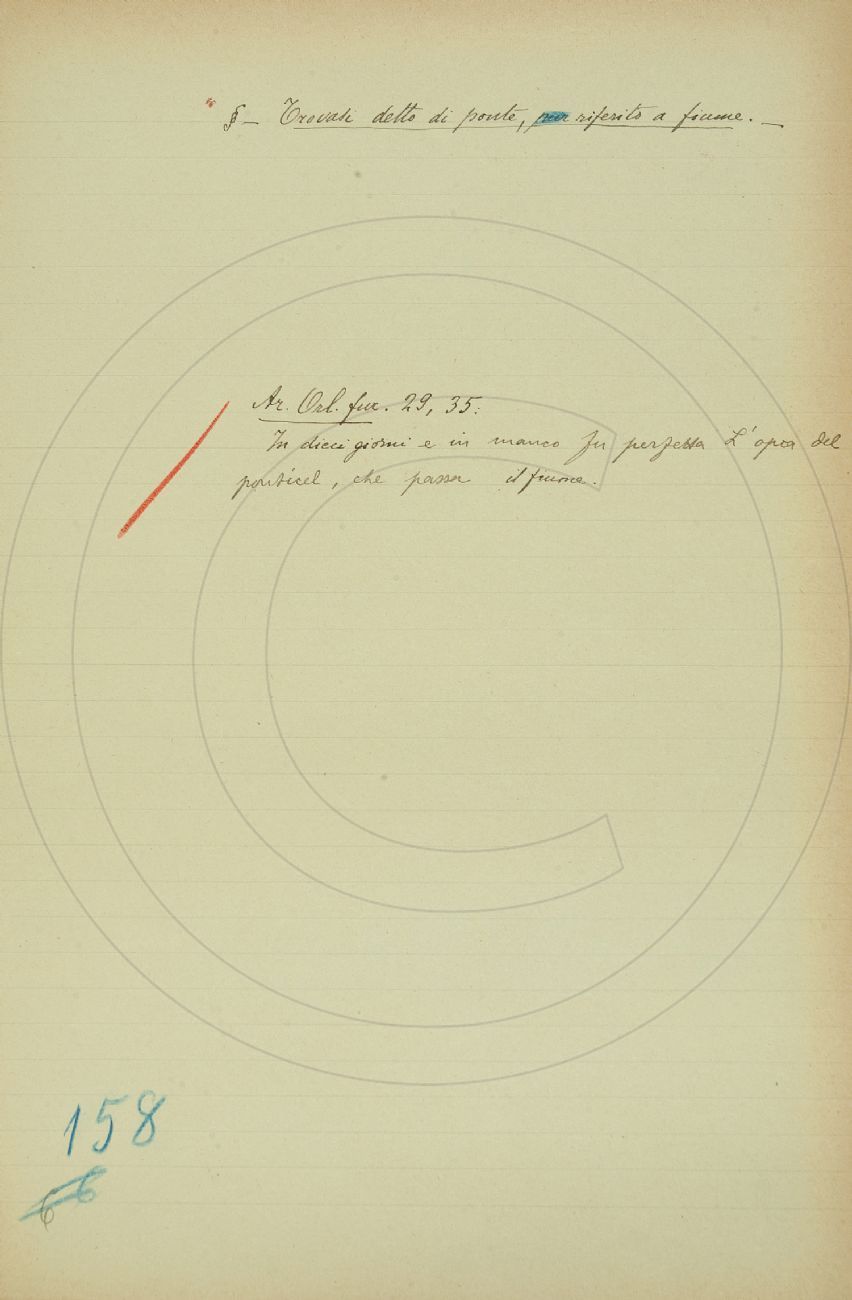 " § — Trovasi detto di ponte, pur riferito a fiume. —
Ar. Orl. fur. 29, 35:
In dieci giorni e in manco fu perfetta L'opra del
ponticel, che passa il fiume.
158
6
6